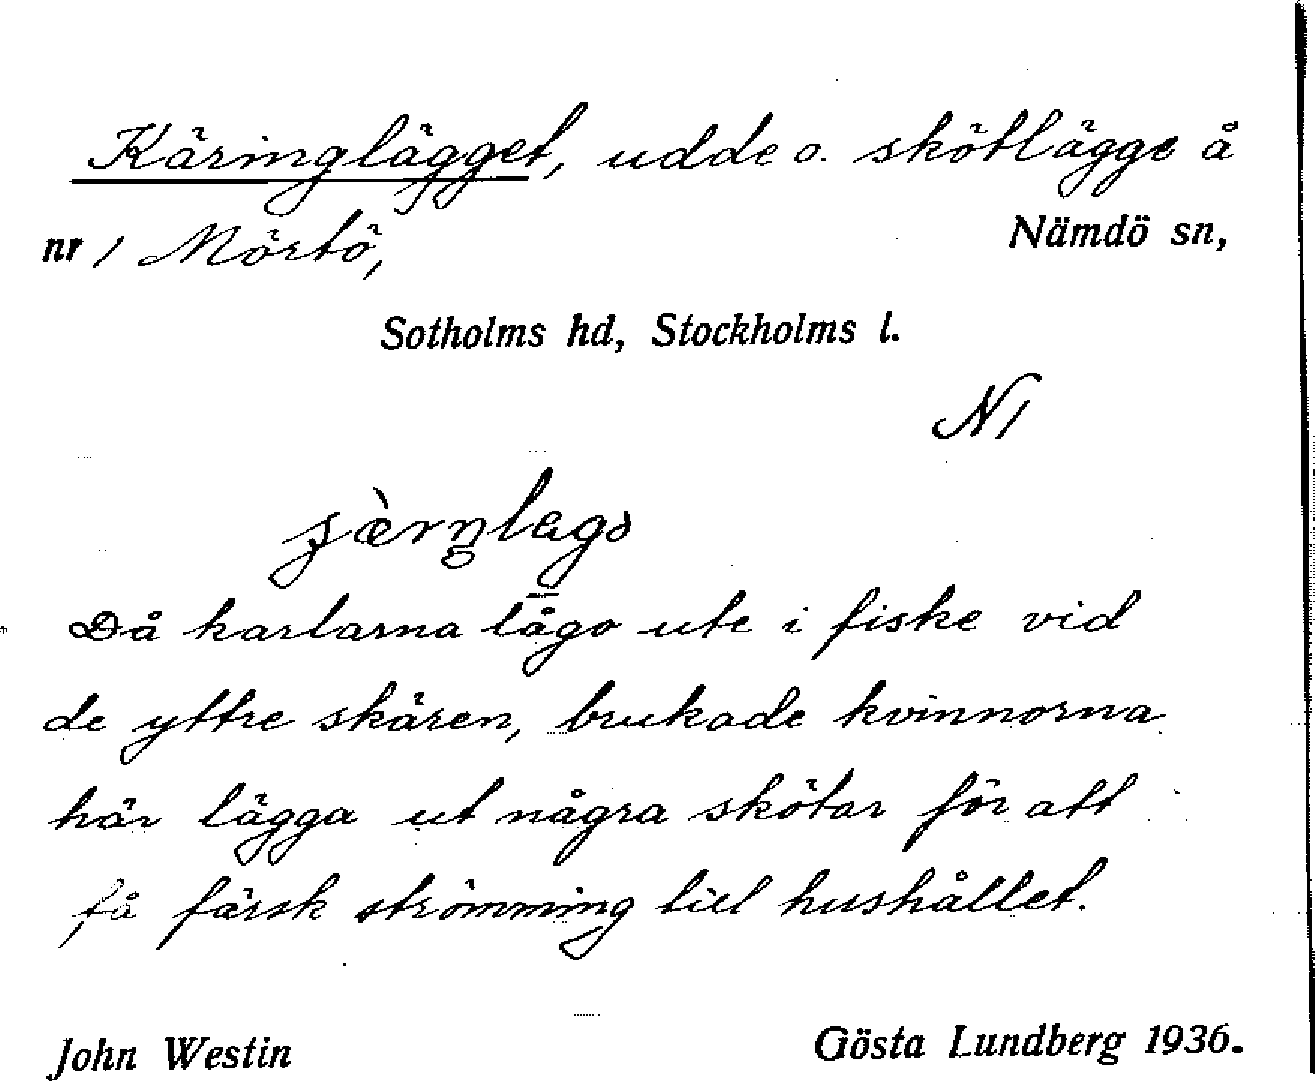 Käringlägget, udde o. skötlägge å
nr 1 Mörtö, Nämdö sn,
Sotholms hd, Stockholms l.
N1
Då karlarna lågo ute i fiske vid
de yttre skären, brukade kvinnorna
här lägga ut några skötar för att
få färsk strömming till hushållet.
John Westin Gösta Lundberg 1936.